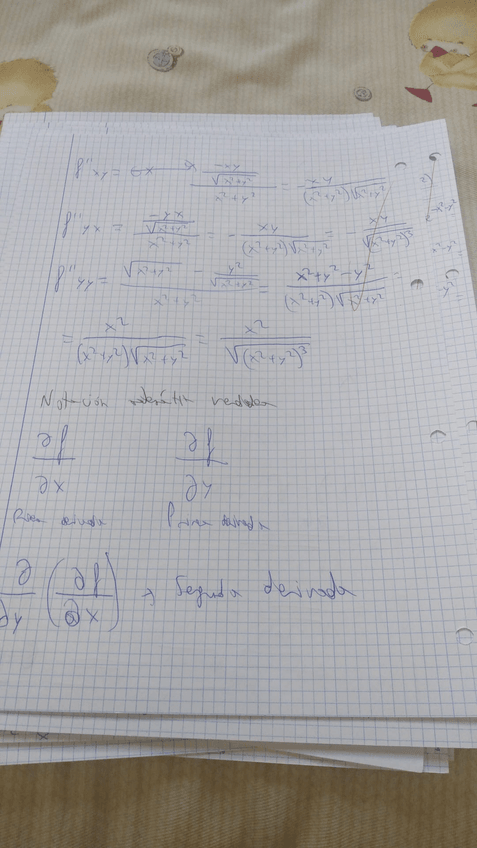 f''xy = \frac{\frac{-xy}{\sqrt{x²+y²}}}{x²+y²} = -\frac{xy}{(x²+y²)\sqrt{x²+y²}}
f''yx = \frac{\frac{-yx}{\sqrt{x²+y²}}}{x²+y²} = -\frac{xy}{(x²+y²)\sqrt{x²+y²}} = -\frac{xy}{\sqrt{(x²+y²)³}}
f''yy = \frac{\sqrt{x²+y²} - \frac{y²}{\sqrt{x²+y²}}}{x²+y²} = \frac{x²+y²-y²}{(x²+y²)\sqrt{x²+y²}} =
= \frac{x²}{(x²+y²)\sqrt{x²+y²}} = \frac{x²}{\sqrt{(x²+y²)³}}
Notación
\frac{∂f}{∂x} \frac{∂f}{∂y}
derivada Primera derivada
\frac{∂}{∂y} (\frac{∂f}{∂x}) → Segunda derivada